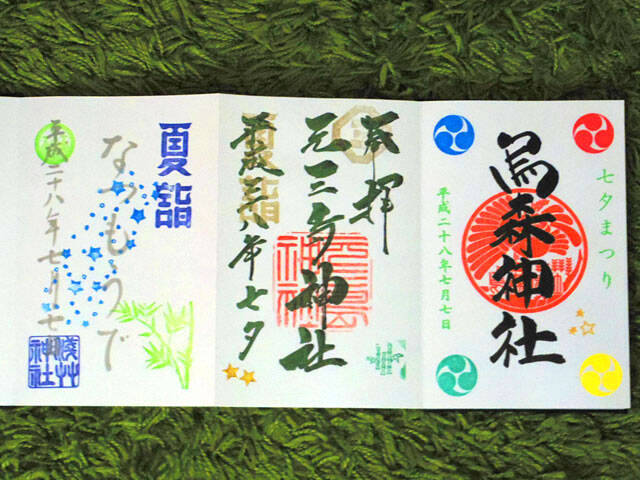 七夕まつり
烏森神社
平成二十八年七月七日
奉拝
元三島神社
夏詣
平成二八年七夕
夏詣
なつもうで
平成二十八年七月七日
浅草
神社